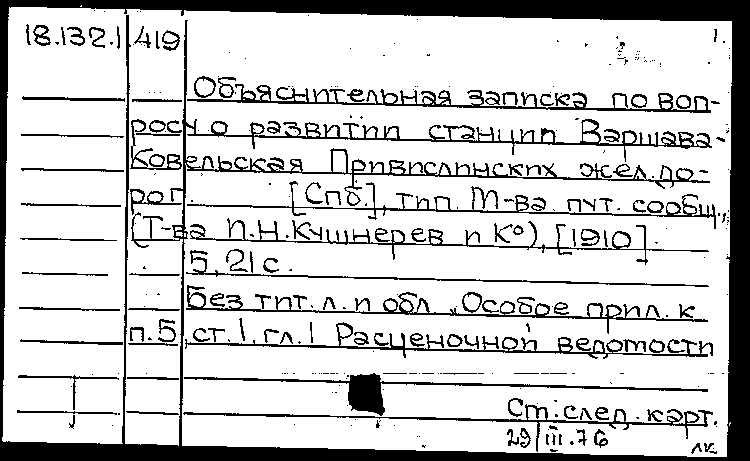 18.132.1 419
1.
Объяснительная записка по воп-
росу о развитии станции Варшава-
Ковельская Привислинских жел.до-
рог. [Спб.], тип. М-ва пут. сообщ.,
(Т-ва И.Н.Кушнерев и К°), [1910].
5, 21 с.
Без тит.л. и обл. „Особое прил. к
п.5 ст.1, гл.1 Расценочной ведомости
См.след.карт.
29/III.76
лк